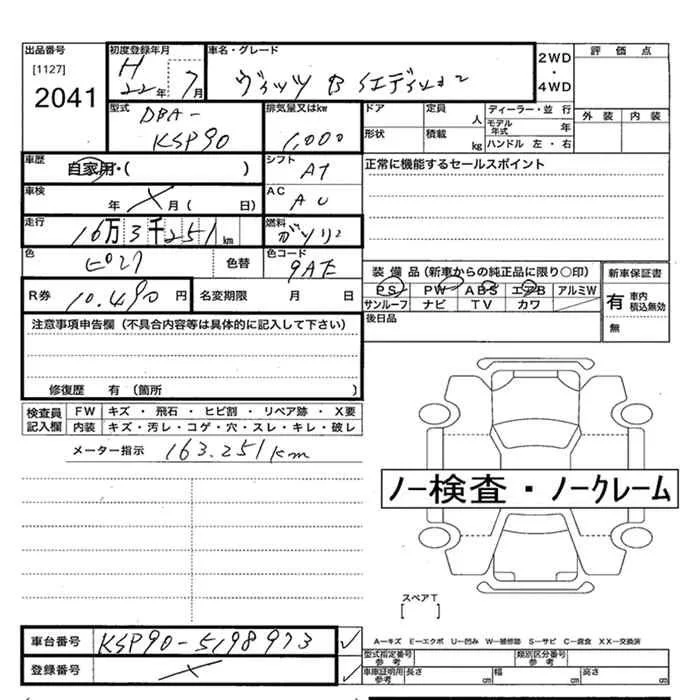 出品番号 初度登録年月 車名・グレード
[1127]
2041
H
22年 7月
ヴィッツ B エディション
2WD
・
4WD
評価点
外装 内装
型式
DBA-
KSP90
排気量又はkw
1,000
ドア 定員 人
形状 積載 kg
ディーラー・並行
モデル年式 年
ハンドル 左・右
車歴
自家用・( )
シフト
AT
正常に機能するセールスポイント
車検
年 X 月( 日)
AC
走行
16万3千251km
燃料
ガソリン
色
色替
色コード
9AE
装備品(新車からの純正品に限り○印)
PS PW ABS エアB アルミW
サンルーフ ナビ TV カワ
新車保証書
有 車内積込無効
無
R券 10.490円
名変期限 月 日
後日品
注意事項申告欄(不具合内容等は具体的に記入して下さい)
修復歴 有(箇所 )
検査員記入欄
FW キズ・飛石・ヒビ割・リペア跡・X要
内装 キズ・汚レ・コゲ・穴・スレ・キレ・破レ
メーター指示 163.251km
ノー検査・ノークレーム
スペアT
[ ]
車台番号 KSP90-5198973 ✓
登録番号 X ✓
A―キズ E―エクボ U―凹み W―補修跡 S―サビ C―腐食 XX―交換済
型式指定番号 参考 類別区分番号 参考
車庫証明用 参考 長さ cm 幅 cm 高さ cm